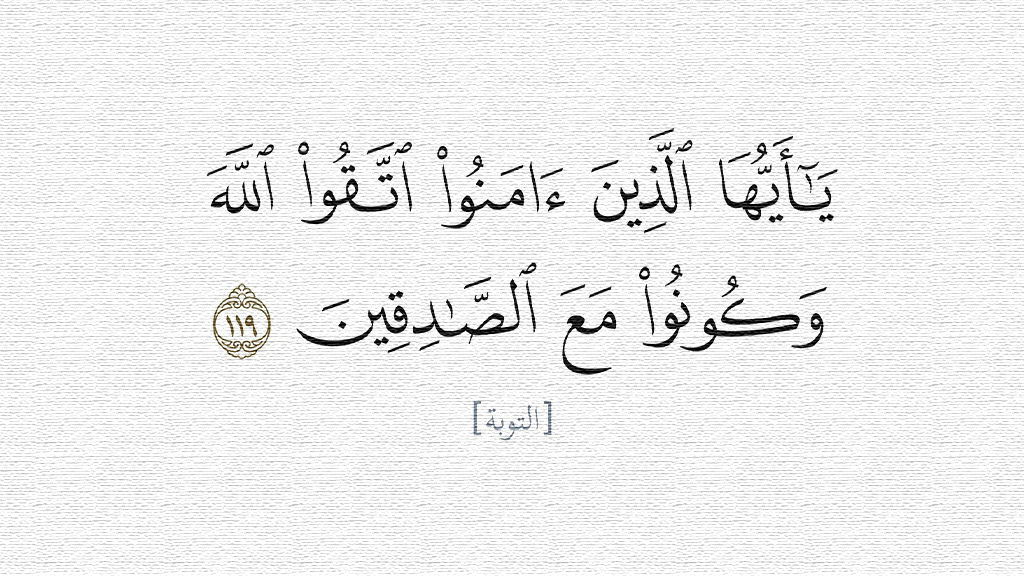 يَـٰٓأَيُّهَا ٱلَّذِينَ ءَامَنُوا۟ ٱتَّقُوا۟ ٱللَّهَ
وَكُونُوا۟ مَعَ ٱلصَّـٰدِقِينَ ١١٩
[التوبة]